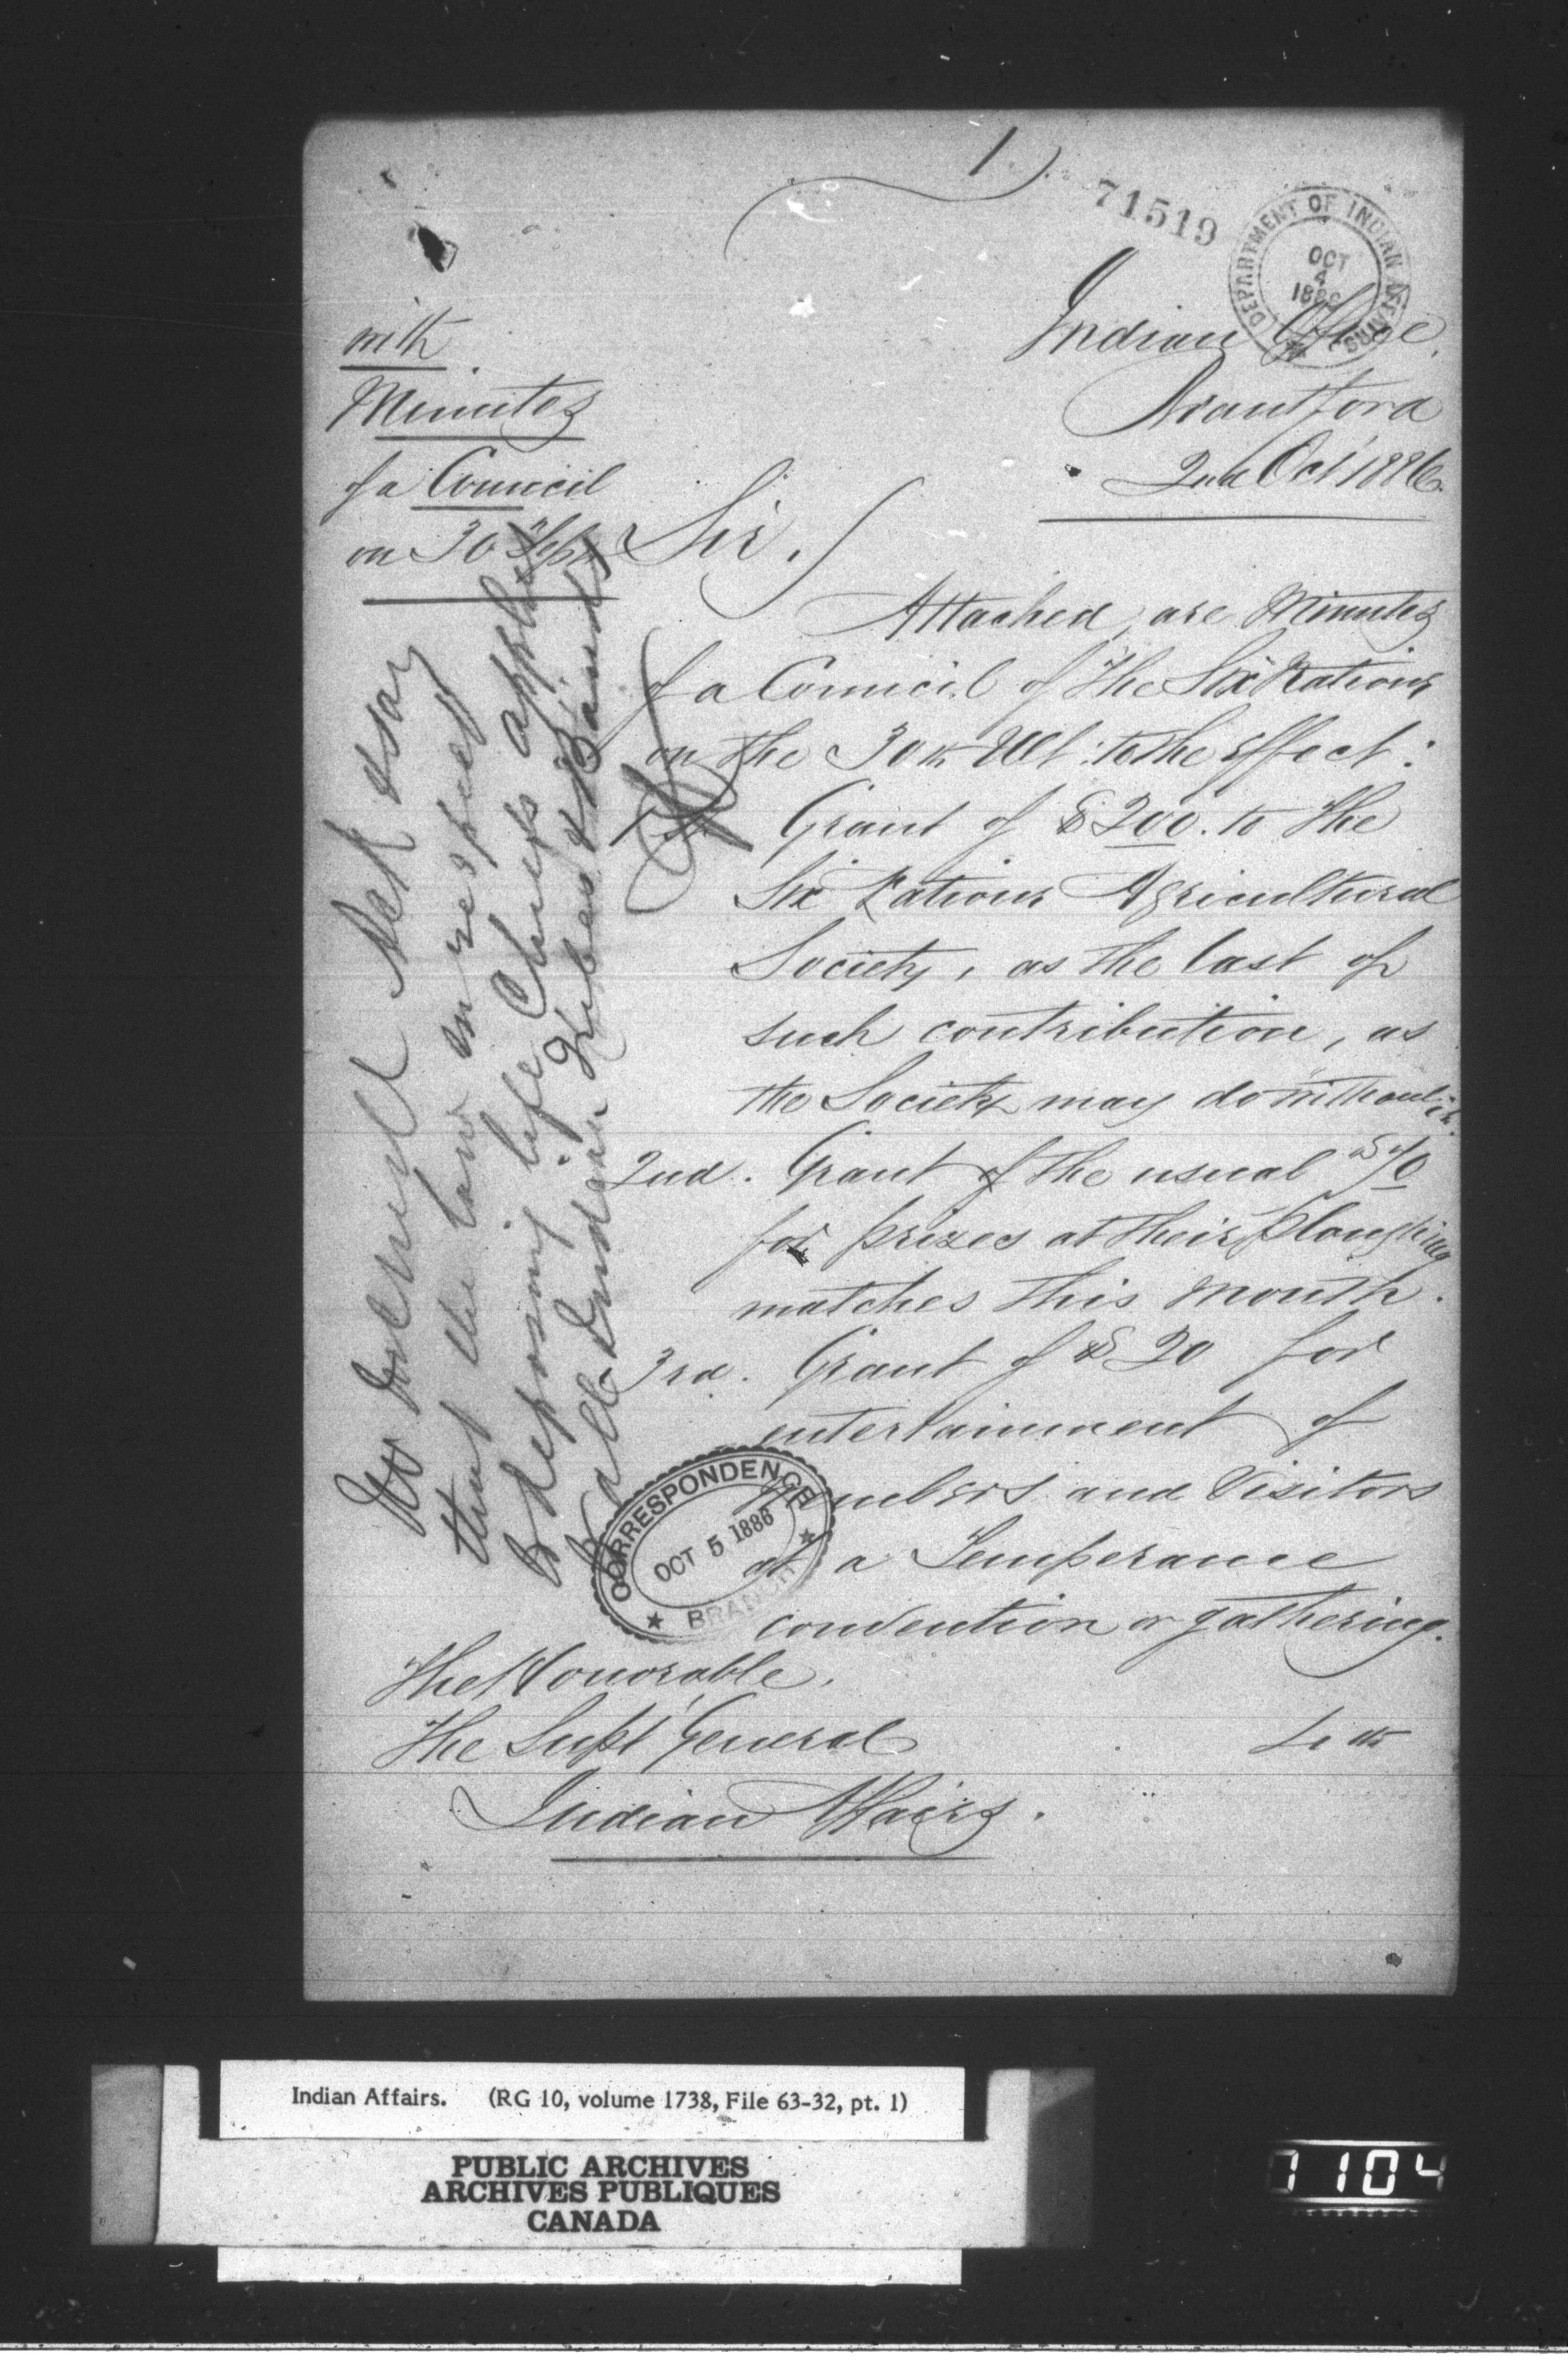 1
71519
DEPARTMENT OF INDIAN AFFAIRS
OCT
4
1886
Indian Office,
Brantford
2nd Oct 1886.
with
Minutes
of a Council
on 30 Sept
Sir.
Attached are Minutes
of a Council of the Six Nations
on the 30th Ult: to the effect:
Grant of $200. to the
Six Nations Agricultural
Society, as the last of
such contribution, as
the Society may do without it.
2nd. Grant of the usual
for prizes at their Ploughing
matches this month.
3rd. Grant of $20 for
entertainment of
Members and Visitors
at a Temperance
convention or gathering.
The Honorable.
The Supt General
Indian Affairs.
4th
say
that the law in respect
to deposing life Chiefs applies
to all Indian Tribes & Bands
CORRESPONDENCE
OCT 5 1886
BRANCH
Indian Affairs. (RG 10, volume 1738, File 63-32, pt. 1)
PUBLIC ARCHIVES
ARCHIVES PUBLIQUES
CANADA
1104